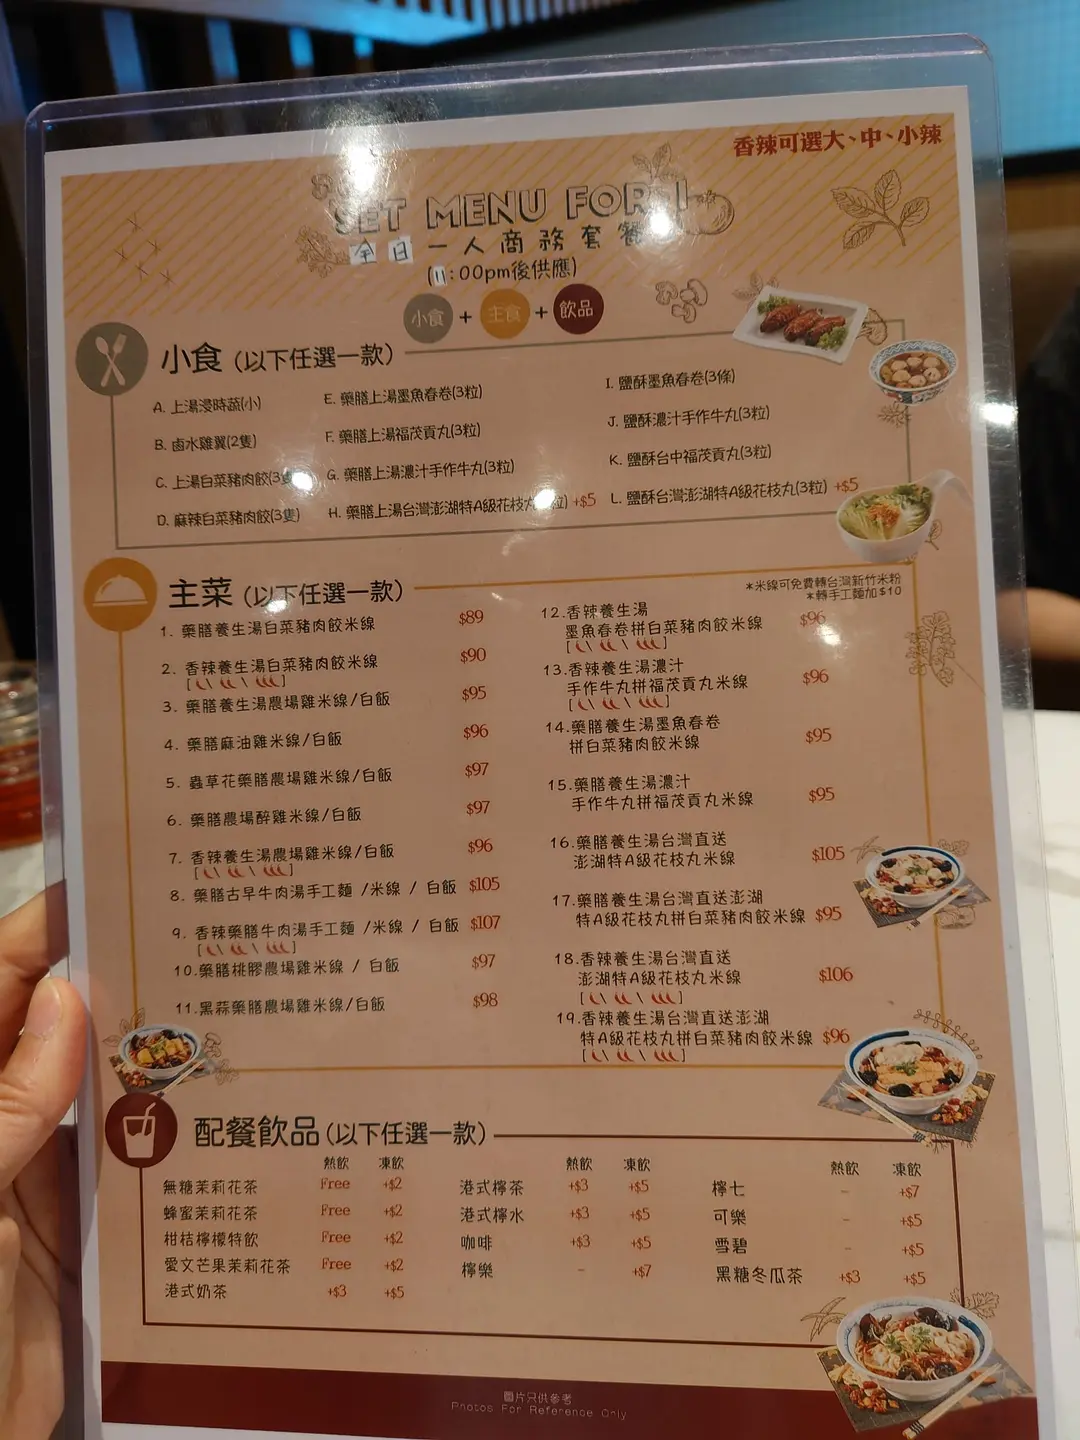 香辣可選大、中、小辣
SET MENU FOR 1
全日一人商務套餐
(11:00pm後供應)
小食 + 主食 + 飲品
小食 (以下任選一款)
A. 上湯浸時蔬(小)
B. 鹵水雞翼(2隻)
C. 上湯白菜豬肉餃(3
D. 麻辣白菜豬肉餃(3隻)
E. 藥膳上湯墨魚春卷(3粒)
F. 藥膳上湯福茂貢丸(3粒)
G. 藥膳上湯濃汁手作牛丸(3粒)
H. 藥膳上湯台灣澎湖特A級花枝丸 粒) +$5
I. 鹽酥墨魚春卷(3條)
J. 鹽酥濃汁手作牛丸(3粒)
K. 鹽酥台中福茂貢丸(3粒)
L. 鹽酥台灣澎湖特A級花枝丸(3粒) +$5
主菜 (以下任選一款)
*米線可免費轉台灣新竹米粉
*轉手工麵加$10
1. 藥膳養生湯白菜豬肉餃米線 $89
2. 香辣養生湯白菜豬肉餃米線 $90
3. 藥膳養生湯農場雞米線/白飯 $95
4. 藥膳麻油雞米線/白飯 $96
5. 蟲草花藥膳農場雞米線/白飯 $97
6. 藥膳農場醉雞米線/白飯 $97
7. 香辣養生湯農場雞米線/白飯 $96
8. 藥膳古早牛肉湯手工麵 /米線 / 白飯 $105
9. 香辣藥膳牛肉湯手工麵 /米線 / 白飯 $107
10.藥膳桃膠農場雞米線 / 白飯 $97
11.黑蒜藥膳農場雞米線/白飯 $98
12.香辣養生湯
墨魚春卷拼白菜豬肉餃米線 $96
13.香辣養生湯濃汁
手作牛丸拼福茂貢丸米線 $96
14.藥膳養生湯墨魚春卷
拼白菜豬肉餃米線 $95
15.藥膳養生湯濃汁
手作牛丸拼福茂貢丸米線 $95
16.藥膳養生湯台灣直送
澎湖特A級花枝丸米線 $105
17.藥膳養生湯台灣直送澎湖
特A級花枝丸拼白菜豬肉餃米線 $95
18.香辣養生湯台灣直送
澎湖特A級花枝丸米線 $106
19.香辣養生湯台灣直送澎湖
特A級花枝丸拼白菜豬肉餃米線 $96
配餐飲品 (以下任選一款)
熱飲 凍飲
無糖茉莉花茶 Free +$2
蜂蜜茉莉花茶 Free +$2
柑桔檸檬特飲 Free +$2
愛文芒果茉莉花茶 Free +$2
港式奶茶 +$3 +$5
熱飲 凍飲
港式檸茶 +$3 +$5
港式檸水 +$3 +$5
咖啡 +$3 +$5
檸樂 - +$7
熱飲 凍飲
檸七 - +$7
可樂 - +$5
雪碧 - +$5
黑糖冬瓜茶 +$3 +$5
圖片只供參考
Photos For Reference Only